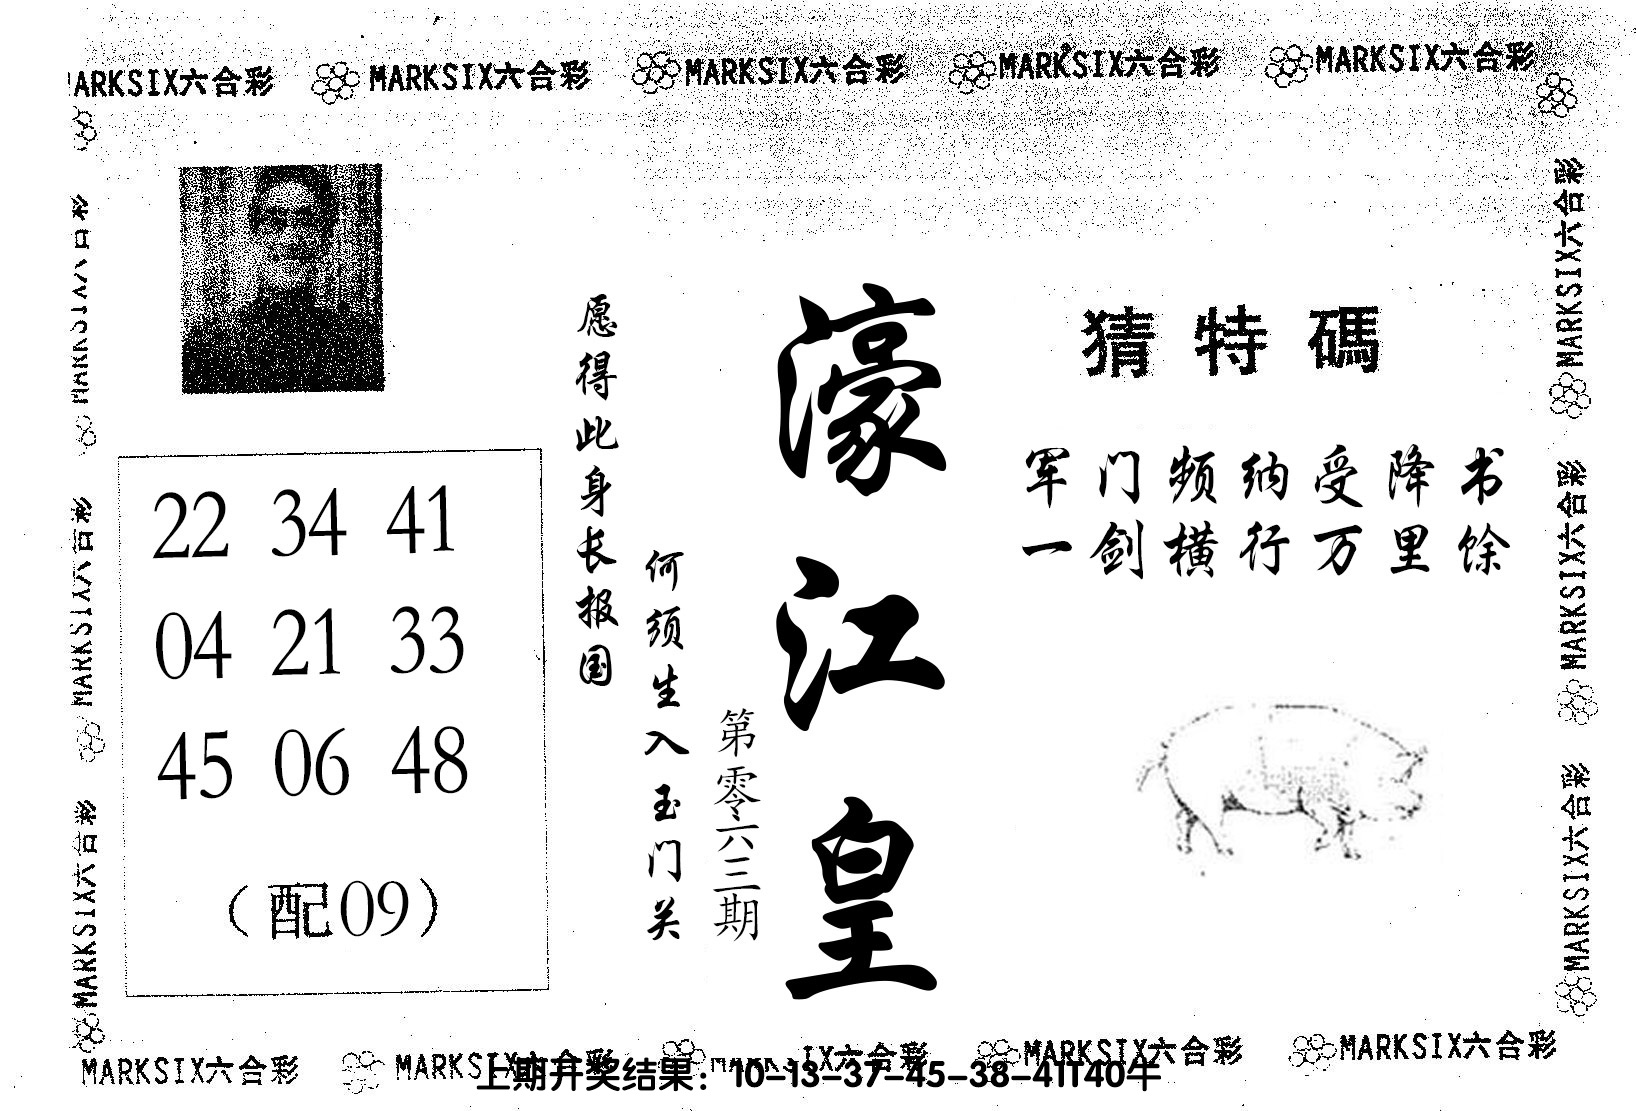 MARKSIX六合彩 MARKSIX六合彩 MARKSIX六合彩 MARKSIX六合彩 MARKSIX六合彩
猜特碼
军门频纳受降书
一剑横行万里馀
濠江皇
第零六三期
愿得此身长报国
何须生入玉门关
22 34 41
04 21 33
45 06 48
（配09）
MARKSIX六合彩
MARKSIX六合彩
MARKSIX六合彩
MARKSIX六合彩
MARKSIX六合彩
MARKSIX六合彩
MARKSIX六合彩 MARKSIX六合彩 MARKSIX六合彩 MARKSIX六合彩 MARKSIX六合彩
上期开奖结果：10-13-37-45-38-41T40牛